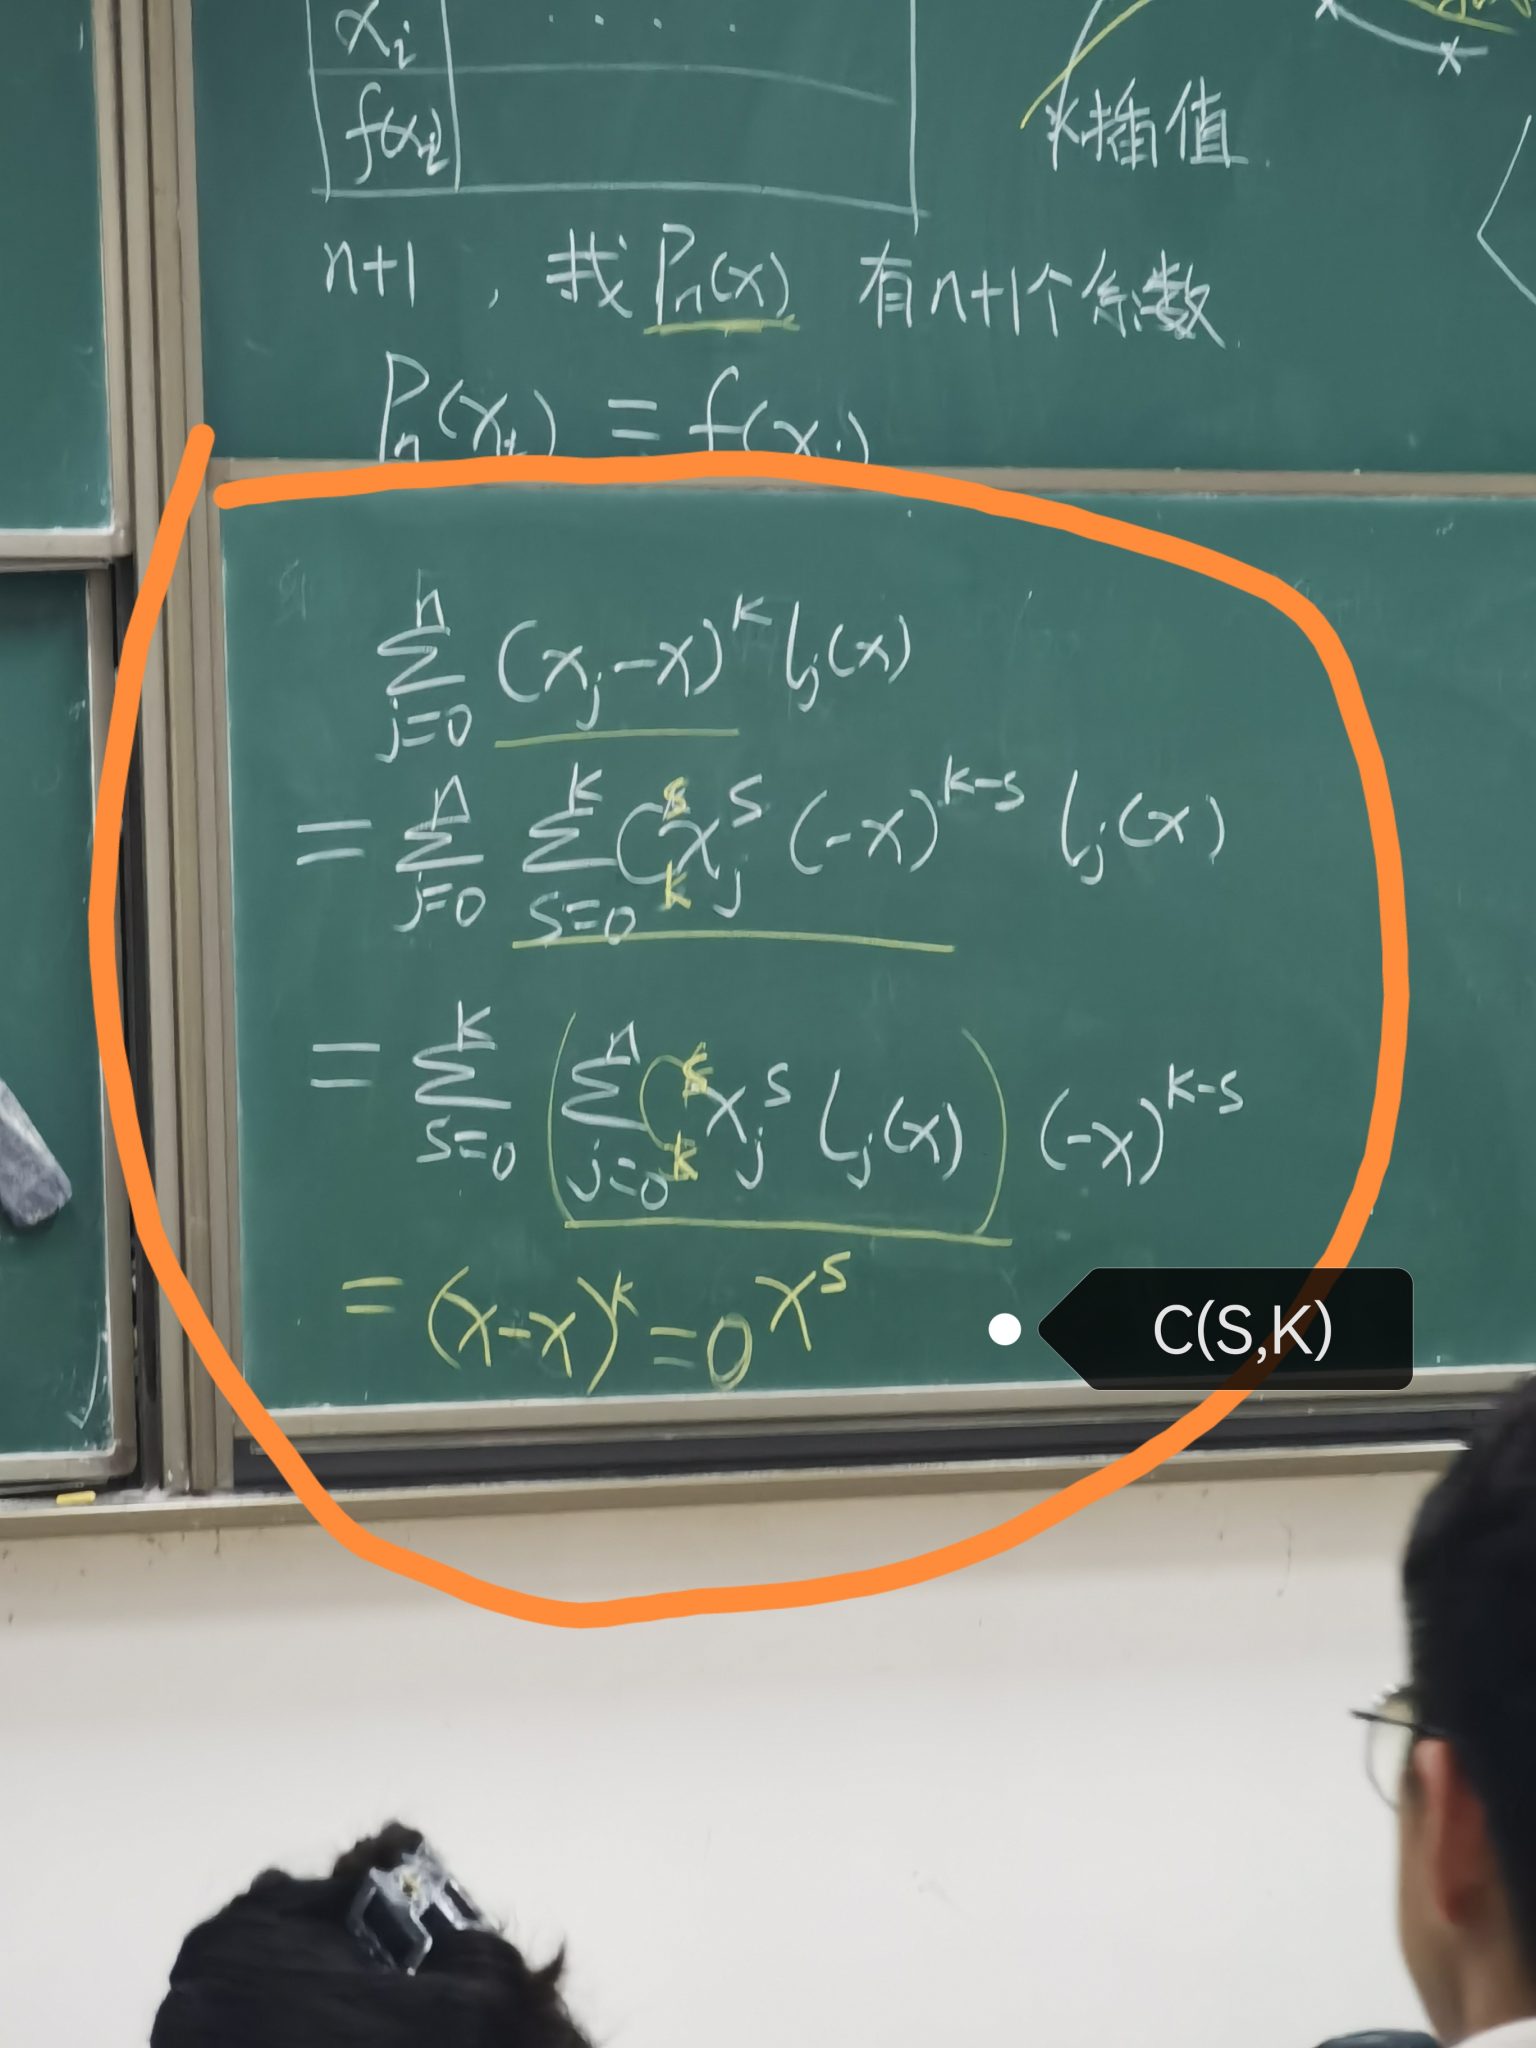 x_i ....
f(x_i)
k插值
n+1, 找 P_n(x) 有n+1个系数
P_n(x_i) = f(x_i)
\sum_{j=0}^{n} (x_j-x)^k l_j(x)
= \sum_{j=0}^{n} \sum_{s=0}^{k} C_k^s x_j^s (-x)^{k-s} l_j(x)
= \sum_{s=0}^{k} (\sum_{j=0}^{n} C_k^s x_j^s l_j(x)) (-x)^{k-s}
= (x-x)^k = 0 x^s
C(S,K)